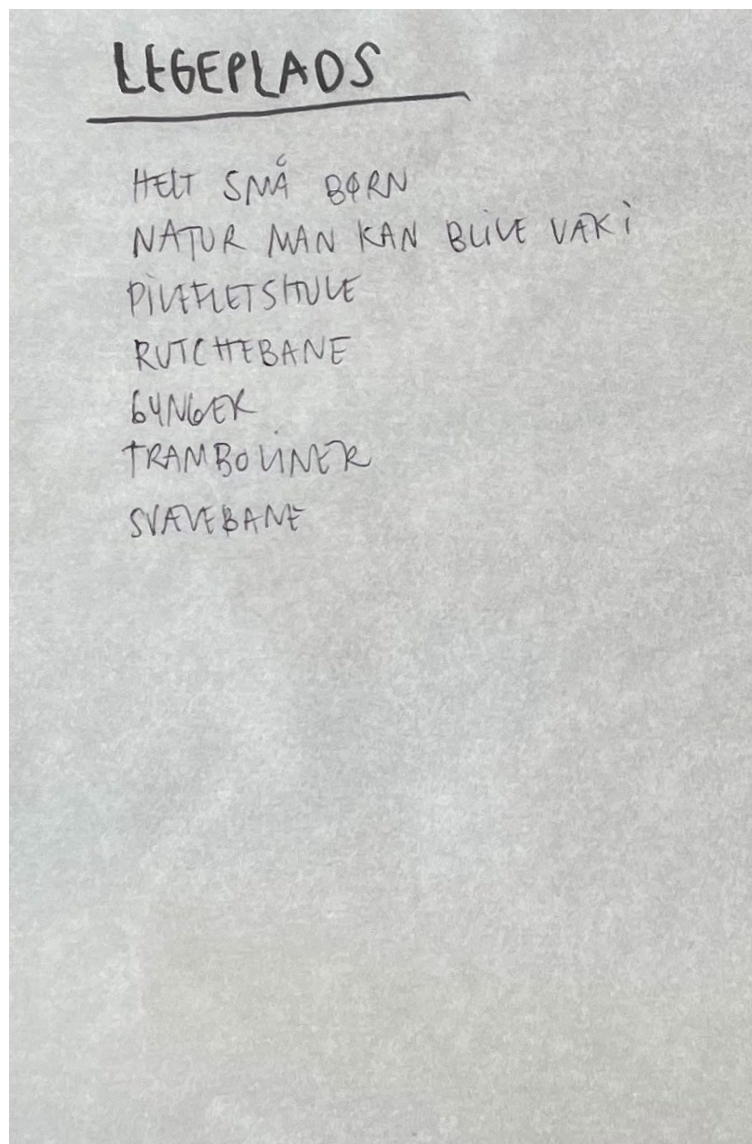 LEGEPLADS
HELT SMÅ BØRN
NATUR MAN KAN BLIVE VÆK i
PILEFLETSHULE
RUTCHEBANE
GYNGER
TRAMBOLINER
SVÆVEBANE